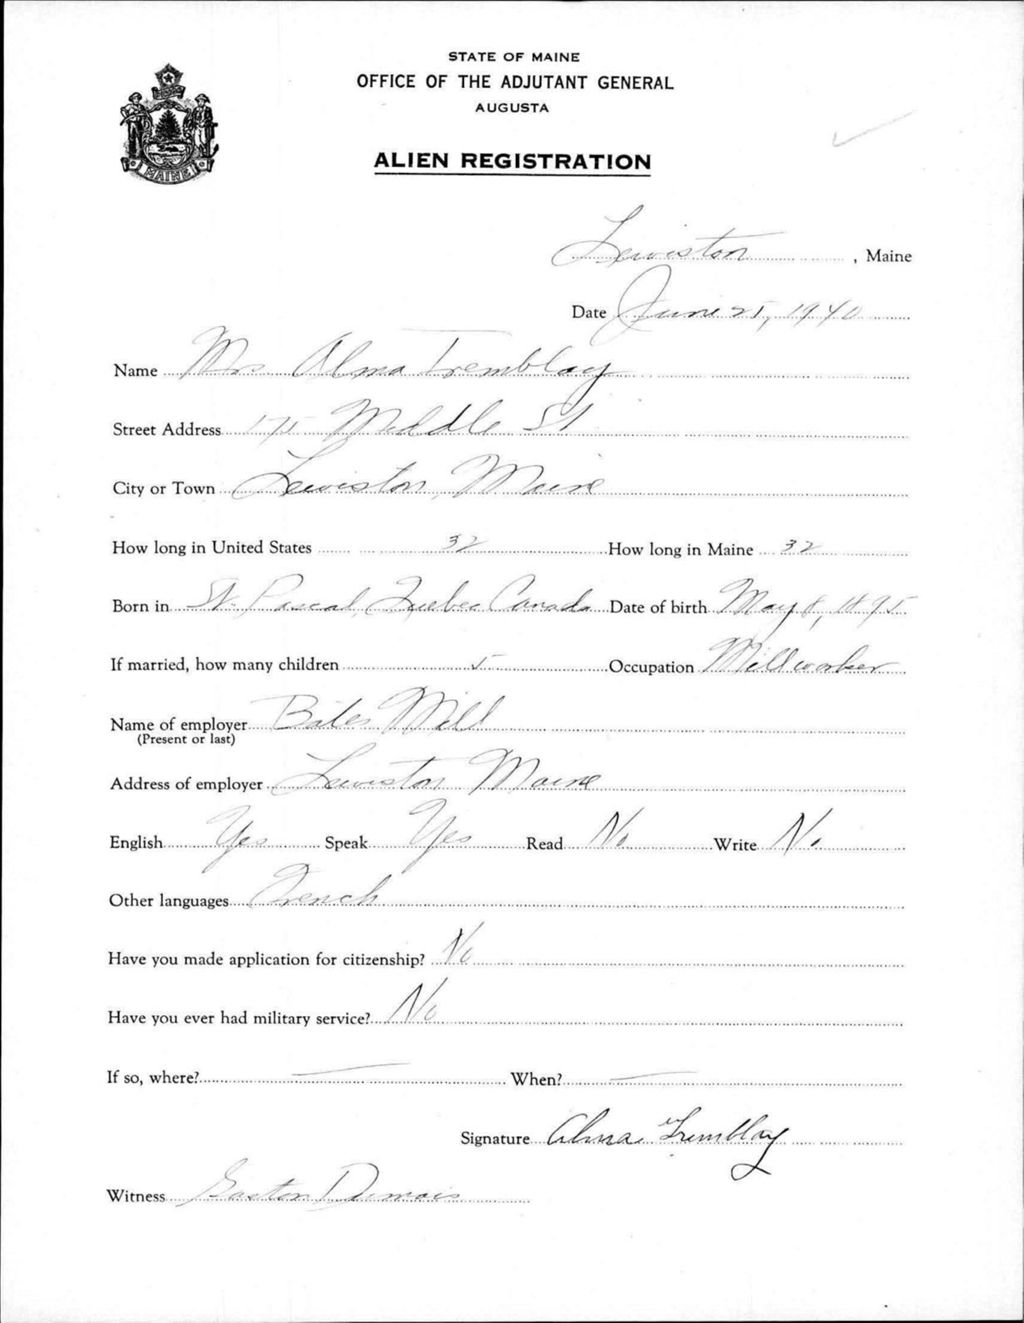 STATE OF MAINE
OFFICE OF THE ADJUTANT GENERAL
AUGUSTA
ALIEN REGISTRATION
MAINE
Lewiston, Maine
Date June 25, 1940
Name Mrs Alma Tremblay
Street Address 171 Middle St
City or Town Lewiston, Maine
How long in United States 32 How long in Maine 32
Born in St. Pascal, Quebec Canada Date of birth May 8, 1895
If married, how many children 5 Occupation Millworker
Name of employer Bates Mill
(Present or last)
Address of employer Lewiston Maine
English Yes Speak Yes Read No Write No
Other languages French
Have you made application for citizenship? No
Have you ever had military service? No
If so, where? — When? —
Signature Alma Tremblay
Witness Gaston Dumais